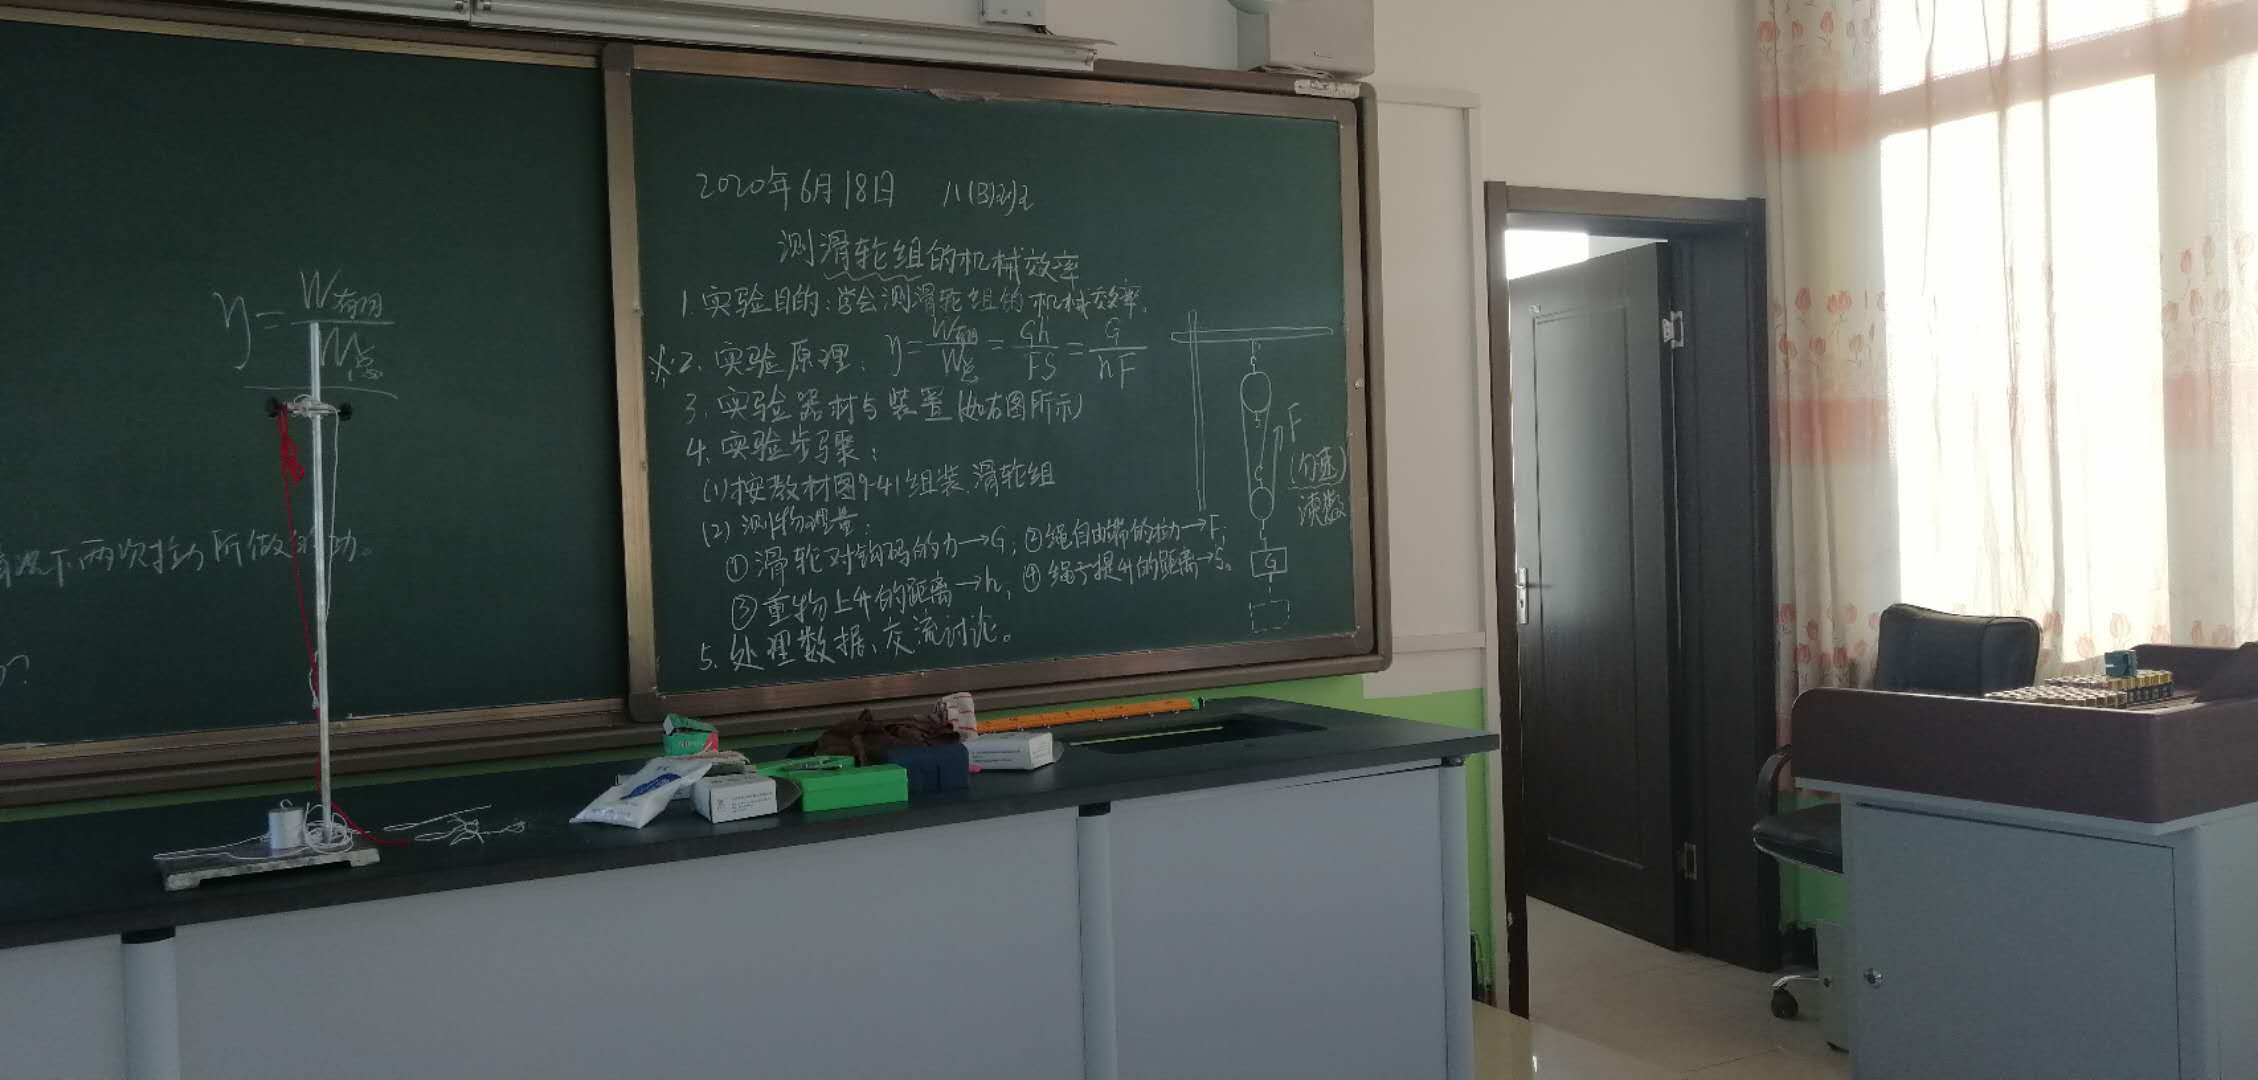 η=W有用/W总
情况下,两次拉力所做的功。
2020年6月18日 八(3)班
测滑轮组的机械效率
1. 实验目的:学会测滑轮组的机械效率。
※2. 实验原理:η=W有用/W总=Gh/FS=G/nF
3. 实验器材与装置(如右图所示)
4. 实验步骤:
(1)按教材图9-41组装滑轮组
(2)测物理量:
①滑轮对钩码的力→G;②绳自由端的拉力→F;
③重物上升的距离→h;④绳子提升的距离→S。
5. 处理数据、交流讨论。
F
(匀速)
读数
G